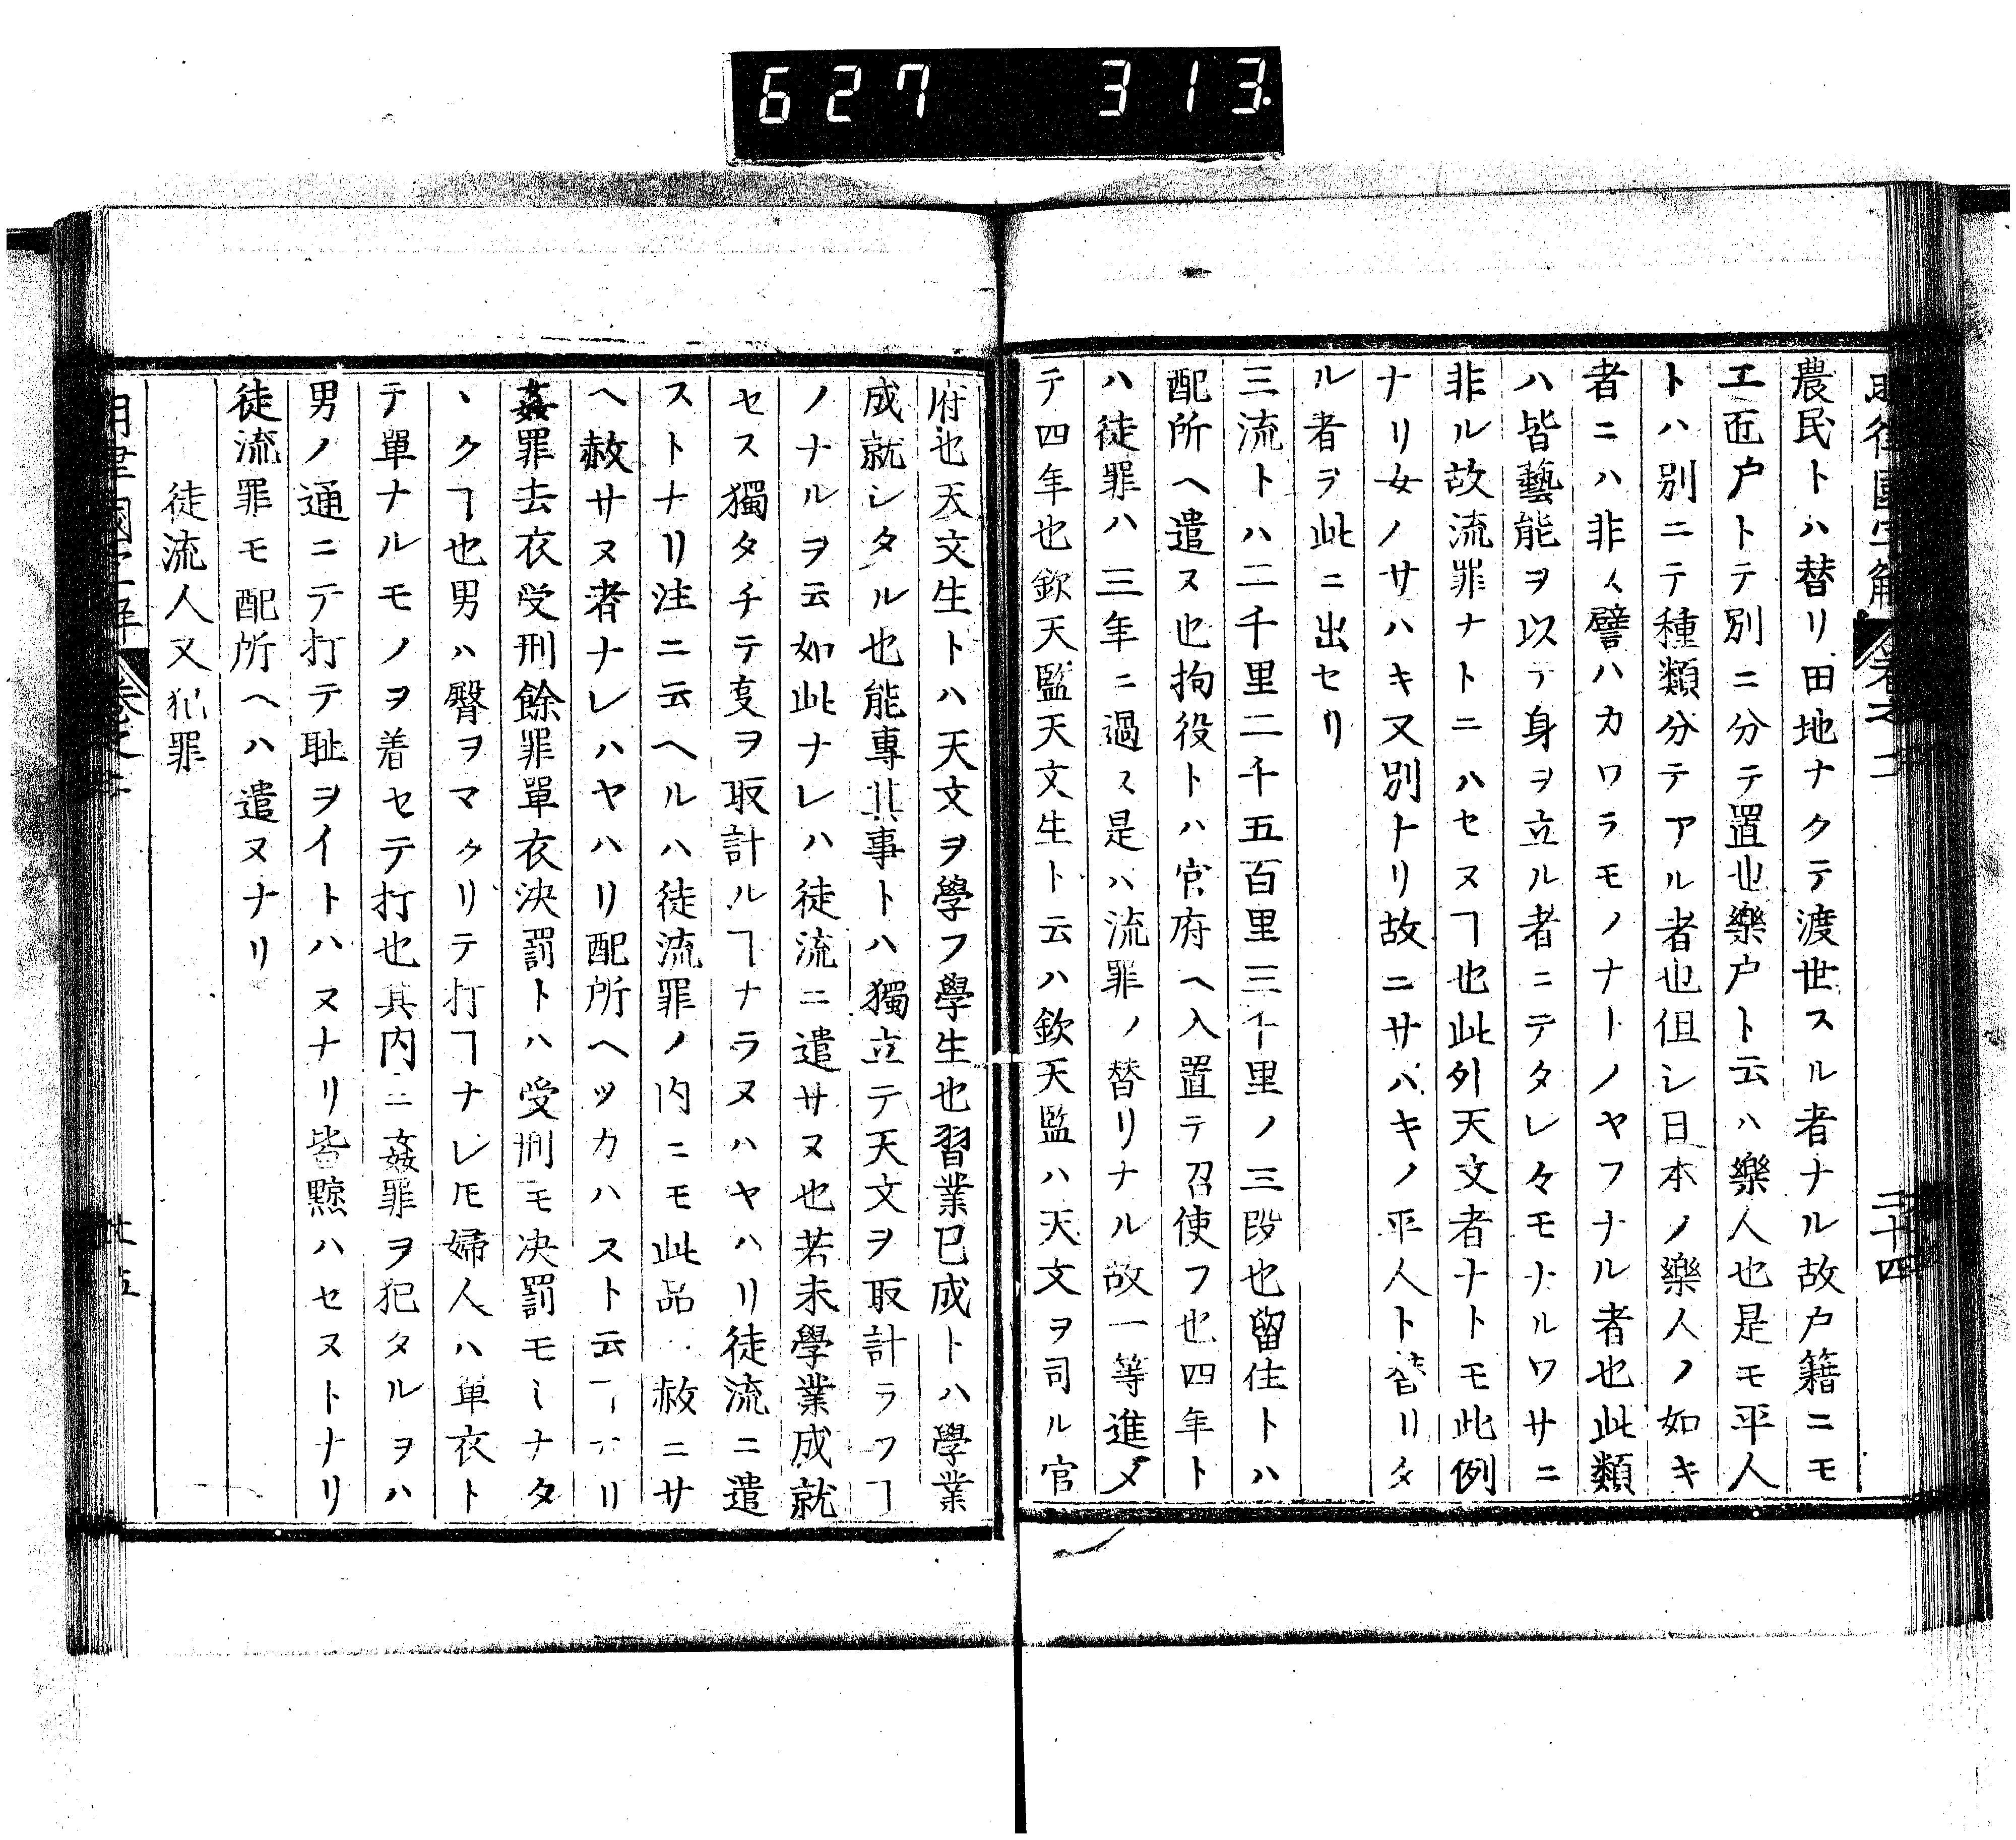 627 313
農民トハ替リ田地ナクテ渡世スル者ナル故户籍ニモ
工匠户トテ別ニ分テ置也樂户ト云ハ樂人也是モ平人
トハ別ニテ種類分テアル者也但シ日本ノ樂人ノ如キ
者ニハ非ス譬ハカワラモノナトノヤフナル者也此類
ハ皆藝能ヲ以テ身ヲ立ル者ニテタレ々モナルワサニ
非ル故流罪ナトニハセヌヿ也此外天文者ナトモ此例
ナリ女ノサハキ又別トリ故ニサバキノ平人ト替リタ
ル者ヲ此ニ出セリ
三流トハ二千里二千五百里三千里ノ三段也留住トハ
配所ヘ遣ヌ也拘役トハ官府ヘ入置テ召使フ也四年ト
ハ徒罪ハ三年ニ過ス是ハ流罪ノ替リナル故一等進メ
テ四年也欽天監天文生ト云ハ欽天監ハ天文ヲ司ル官
府也天文生トハ天文ヲ學フ學生也習業已成トハ學業
成就シタル也能專其事トハ獨立テ天文ヲ取計ラフヿ
ノナルヲ云如此ナレハ徒流ニ遣サヌ也若未學業成就
セス獨タチテ叓ヲ取計ルヿナラヌハヤハリ徒流ニ遣
ストナリ注ニ云ヘルハ徒流罪ノ内ニモ此品赦ニサ
ヘ赦サヌ者ナレハヤハリ配所ヘツカハスト云リ
姦罪去衣受刑餘罪單衣决罰トハ受刑モ决罰モーナタ
ヽクヿ也男ハ臀ヲマクリテ打ヿナレ𪜈婦人ハ單衣ト
テ單ナルモノヲ着セテ打也其内ニ姦罪ヲ犯タルヲハ
男ノ通ニテ打テ耻ヲイトハヌナリ皆黥ハセヌトナリ
徒流罪モ配所ヘハ遣ヌナリ
徒流人又犯罪